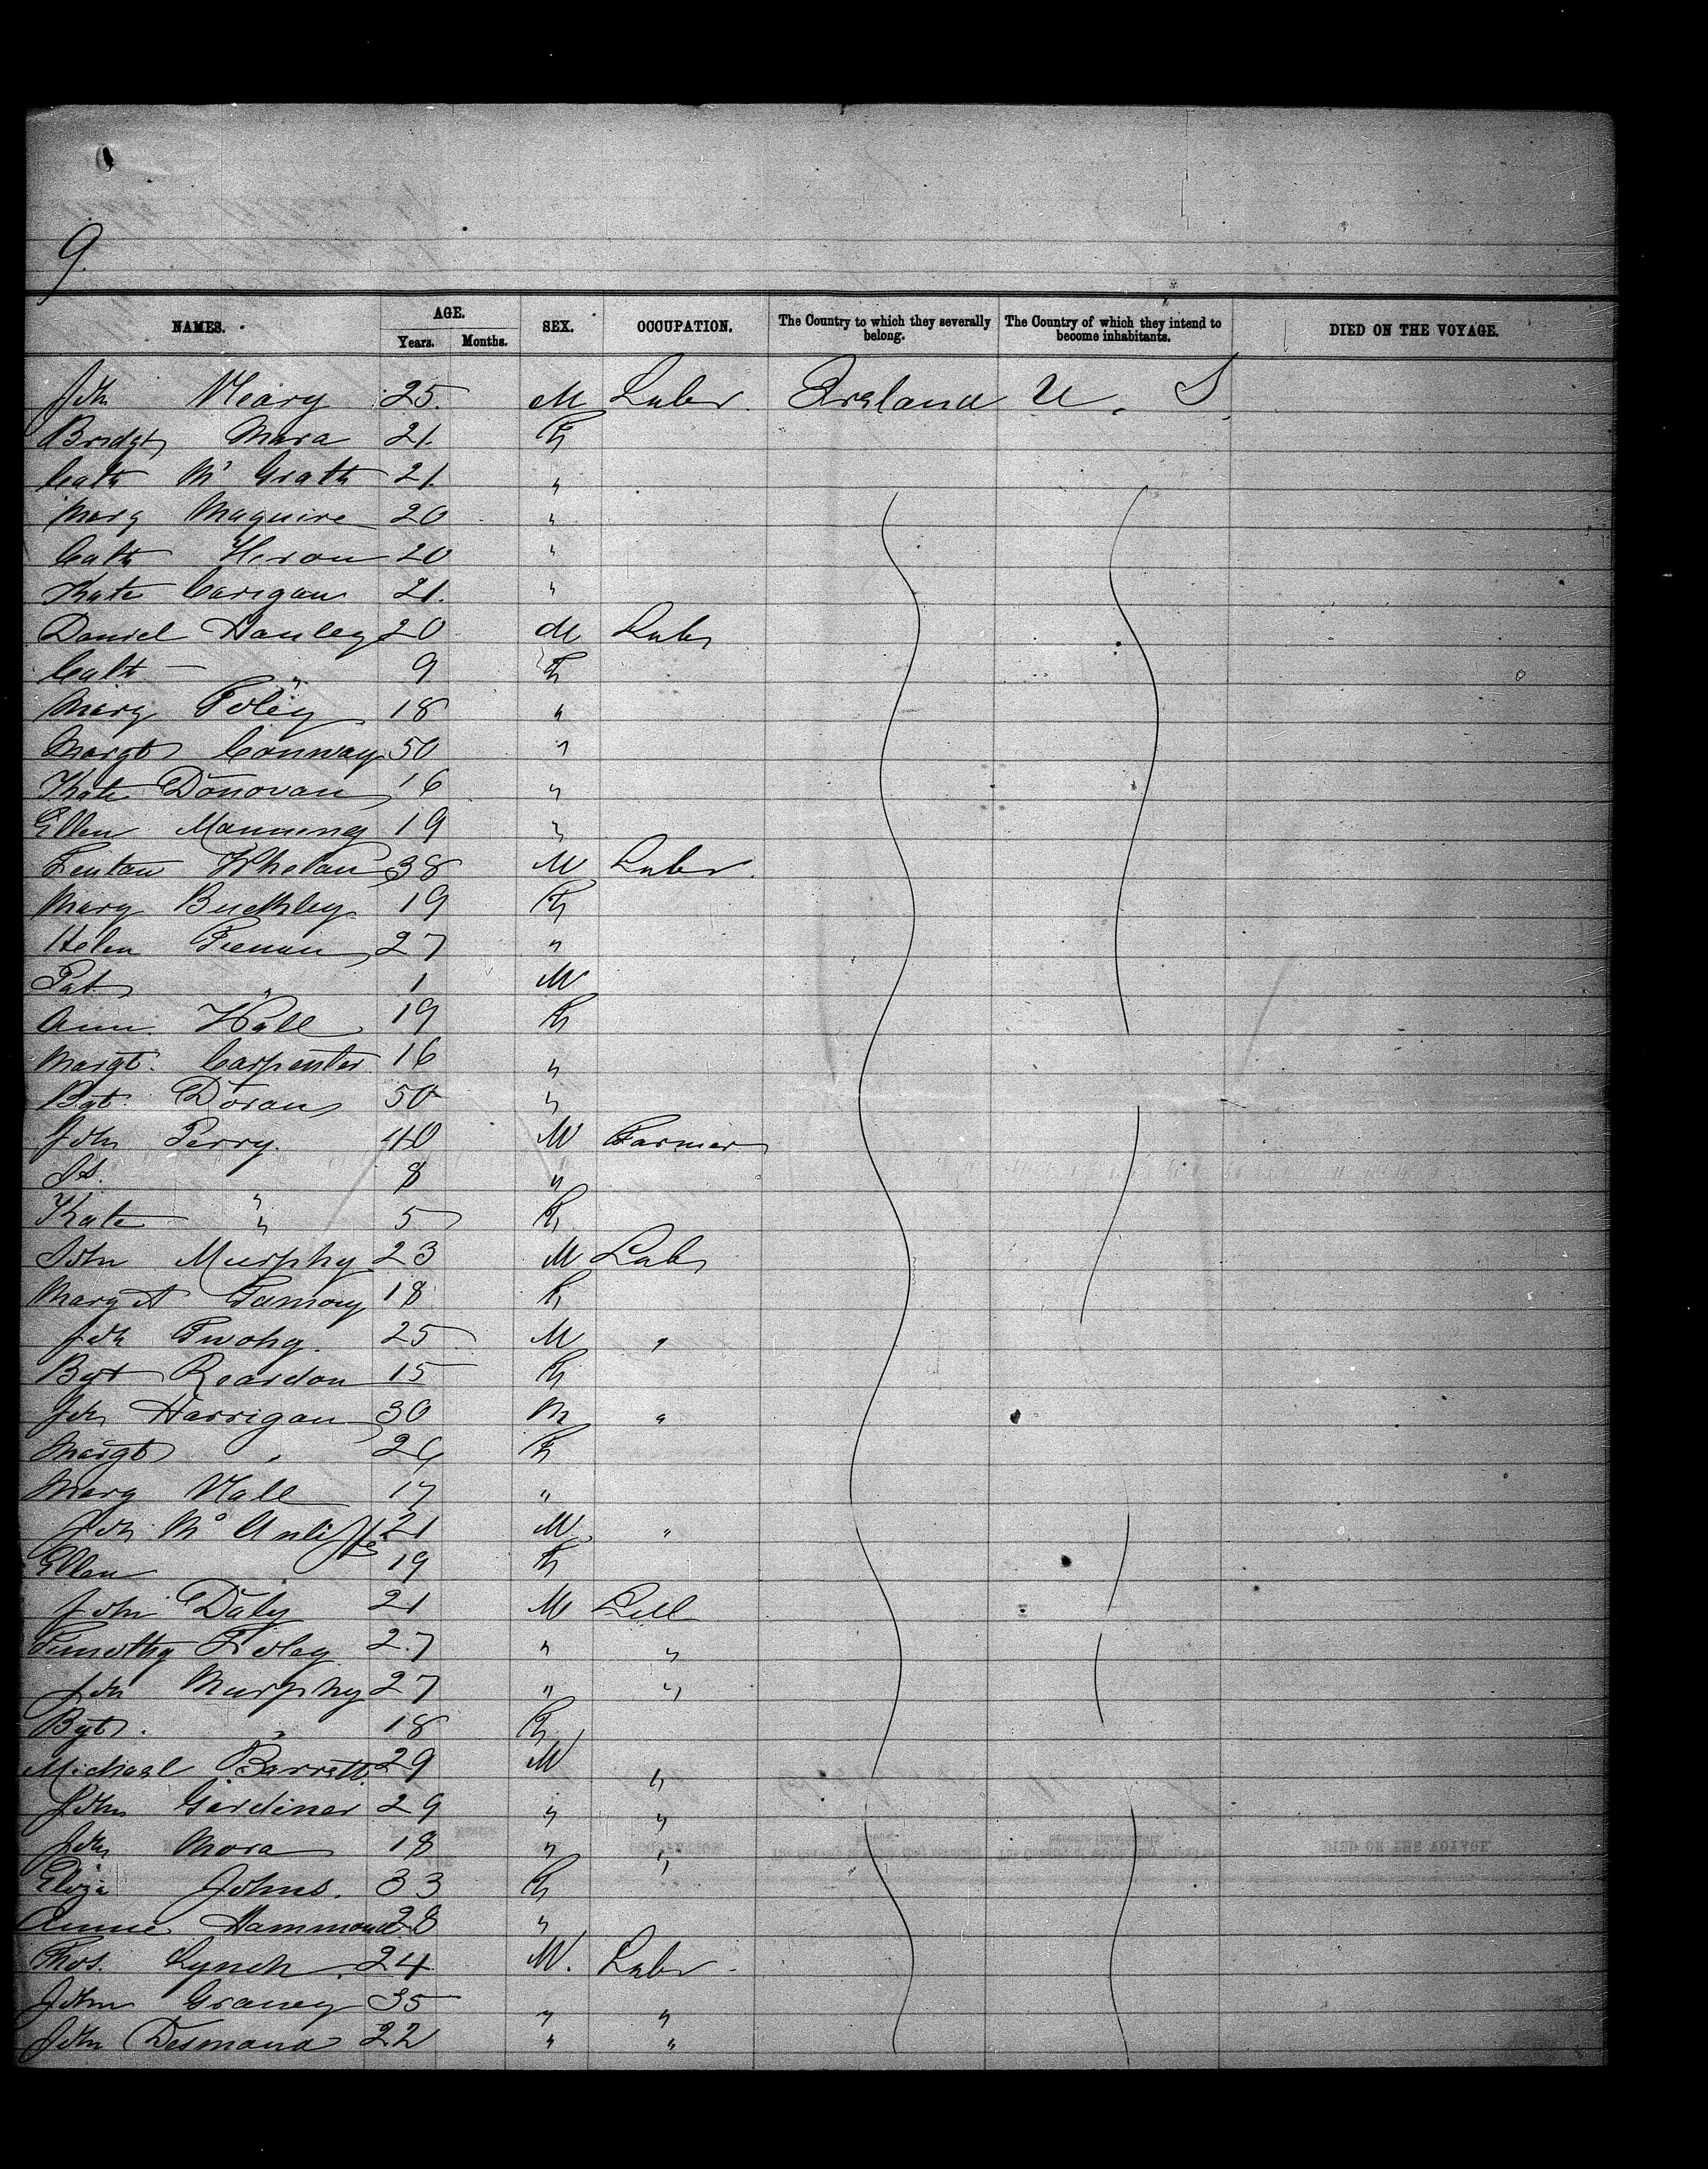 9.
NAMES. AGE. SEX. OCCUPATION. The Country to which they severally belong. The Country of which they intend to become inhabitants. DIED ON THE VOYAGE.
Years. Months.
Joh Neary 25 M Labr. Ireland U. S.
Bridgt Mara 21 F
Cath McGrath 21 "
Mary Maguire 20 "
Cath Heron 20 "
Kate Carigan 21 "
Daniel Hanley 20 M Labr
Cath " 9 F
Mary Foley 18 "
Margt Conway 50 "
Kate Donovan 16 "
Ellen Manning 19 "
Fentan Whelan 38 M Labr.
Mary Buckley 19 F
Helen 27 "
Pat " 1 M
Ann Wall 19 F
Margt. Carpenter 16 "
Bgt. Doran 50 "
John Perry. 40 M Farmer
" 8 "
Kate " 5 F
John Murphy 23 M Labr
Mary A 18 F
Joh Twohy. 25 M "
Bgt Reardon 15 F
Joh Harrigan 30 M "
Margt " 26 F
Mary Hall 17 "
Joh McAuliffe 21 M "
Ellen " 19 F
John Daly 21 M
Timothy Foley 27 " "
Joh Murphy 27 " "
Bgt. " 18 F
Michael Barrett 29 M "
John Gardiner 29 " "
Joh Mora 18 " "
Eliza Johns. 33 F
Annie Hammond 28 "
Thos. Lynch 24 M. Labr
John Graney 35 " "
John Desmond 22 " "